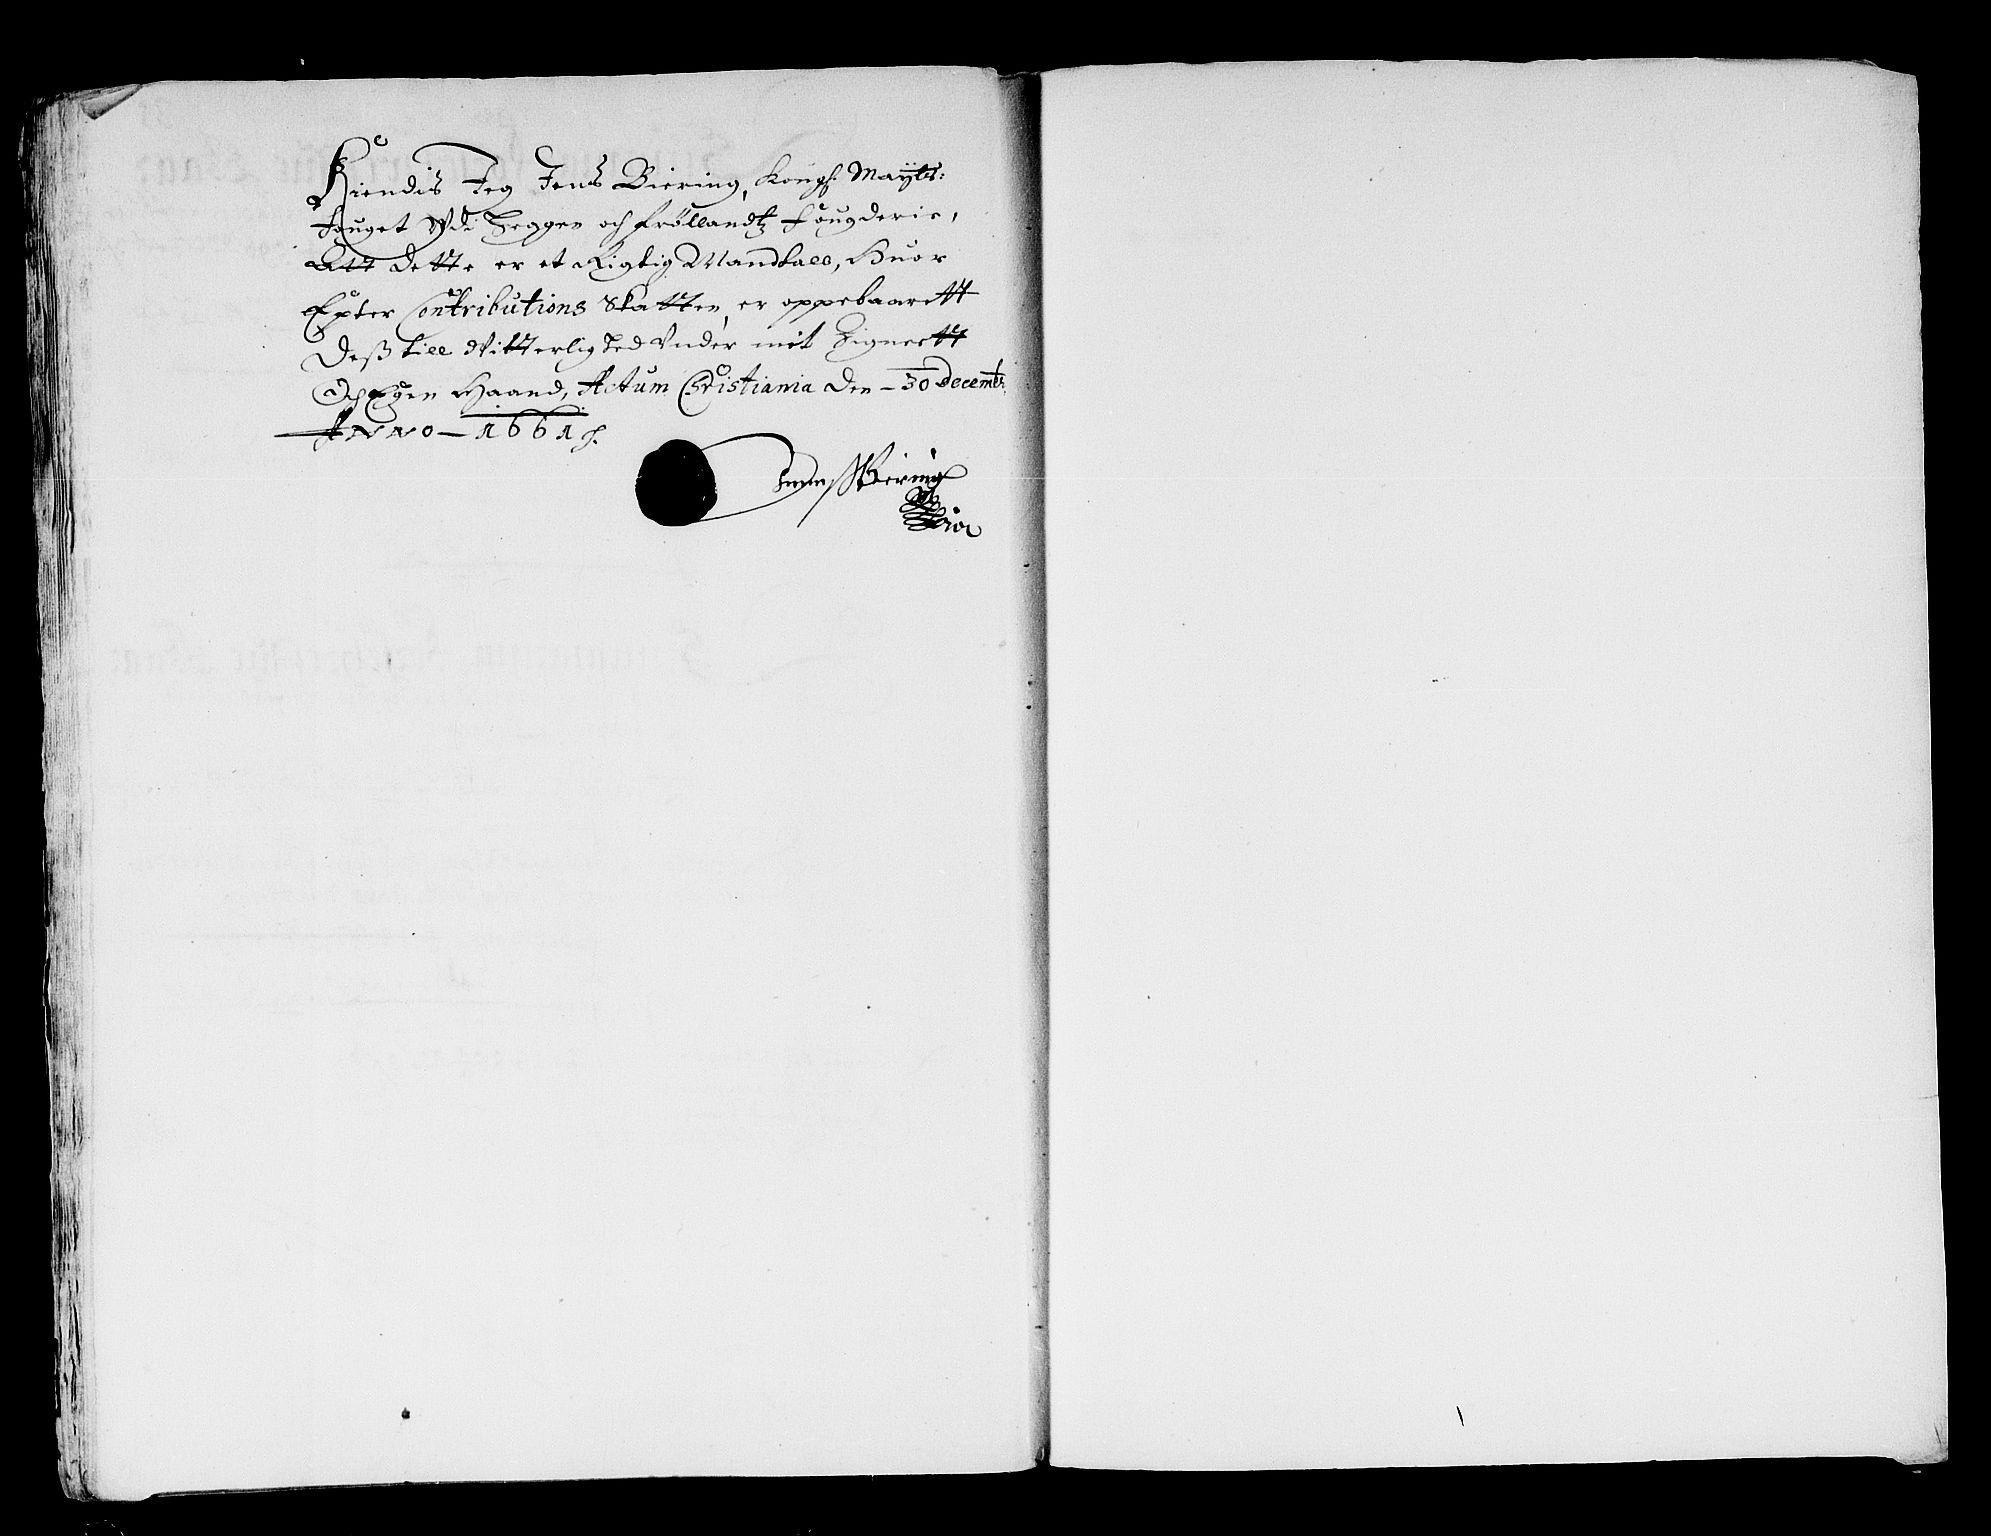 Kiendis Jeg Jens Biering, Kongl: Maytts:
fouget Vdi Heggen och Frøllandtz fougderie,
Att dette er et Rigtig Mandtall, Huor
Epter Contributions Skatten, er oppebaarett
Deß till Vitterlighed Vnder mit Zignett
Och Egen Haand, Actum Christiania den 30 decembr:
ANNO 1661
Jenns Biering